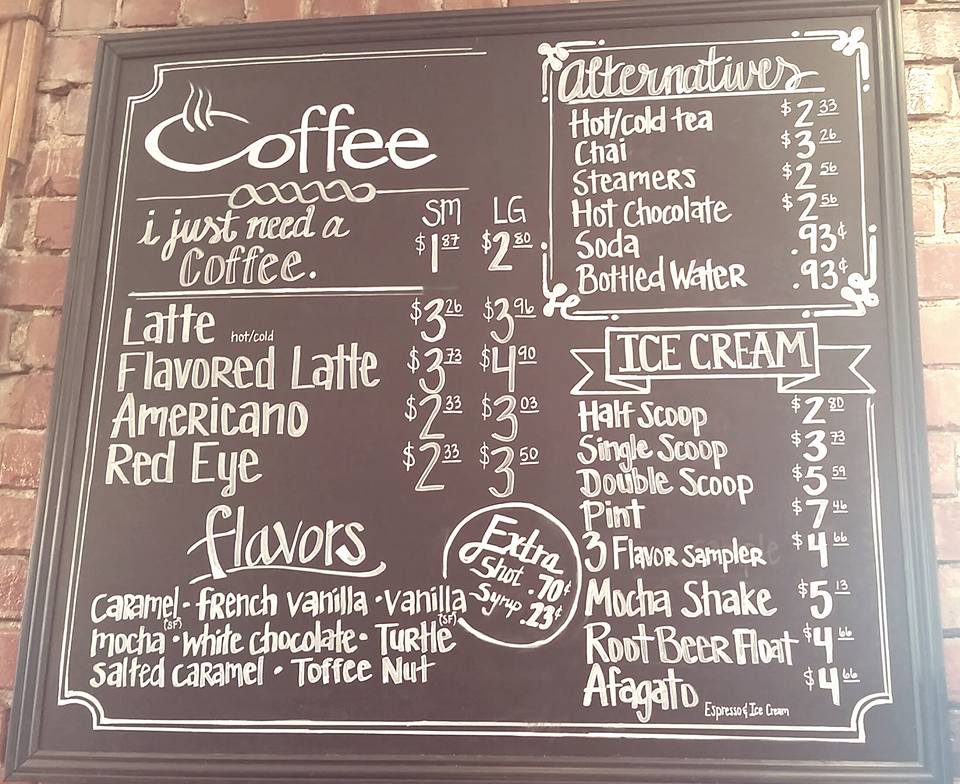 Coffee
i just need a
Coffee.
SM LG
$1 87 $2 80
Latte hot/cold $3 26 $3 96
Flavored Latte $3 73 $4 90
Americano $2 33 $3 03
Red Eye $2 33 $3 50
flavors
Caramel (SF) - french vanilla - vanilla (SF)
mocha - white chocolate - Turtle
salted caramel - Toffee Nut
Extra
Shot .70¢
Syrup .23¢
Alternatives
Hot/cold tea $2 33
Chai $3 26
Steamers $2 56
Hot Chocolate $2 56
Soda .93¢
Bottled Water .93¢
ICE CREAM
Half Scoop $2 80
Single Scoop $3 73
Double Scoop $5 59
Pint $7 46
3 Flavor Sampler $4 66
Mocha Shake $5 13
Root Beer Float $4 66
Afagato $4 66
Espresso & Ice Cream